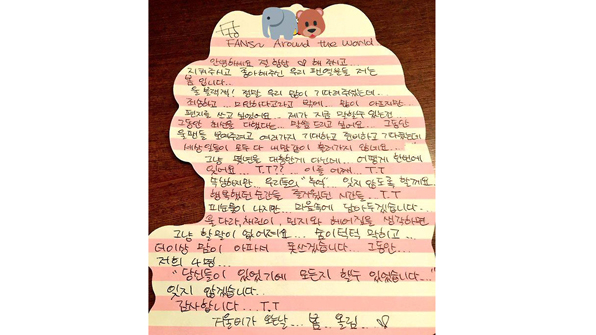 FANS~ Around the World
안녕하세요 절 항상 ♡ 해 주시고...
지켜주시고 좋아해주신 우리 팬여러분 저는
봄 입니다..
울 블랙잭! 정말 우리 많이 기다려주셨는데..
죄송하고... 미안하다고라고 밖에.. 맘이 아프지만..
편지를 쓰고 있어요.. 제가 지금 말할수 있는건
그동안 최선을 다했다는... 말을 드리고 싶어요.. 그동안
울팬들 보여주려고 여러가지 기대하고 준비하고 기다렸는데
세상일들이 모두 다 내맘같이 흘러가지 않네요..
그냥 몇년을 대충한게 아닌데... 어떻게 한번에
잊어요... T.T?? .. 이를 어째... T.T
부탁하지만.. 우리들의 "추억" 잊지 않도록 할께요..
행복했던 순간들 즐거웠던 시간들... T.T
피눈물이 나지만... 마음속에 담아두겠습니다..
울 다라, 채린이, 민지와 헤어짐을 생각하면
그냥 할말이 없어져요... 숨이턱턱 막히고...
더이상 맘이 아파서 못쓰겠습니다... 그동안...
저희 4명...
"당신들이 있었기에 모든지 할수 있었습니다..."
잊지 않겠습니다..
감사합니다... T.T
겨울비가 오는날... 봄.. 올림... ♡